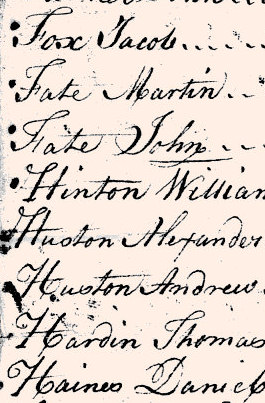 Fox Jacob....
Fate Martin..
Fate John..
Hinton William
Huston Alexander
Huston Andrew
Hardin Thomas
Haines Daniel